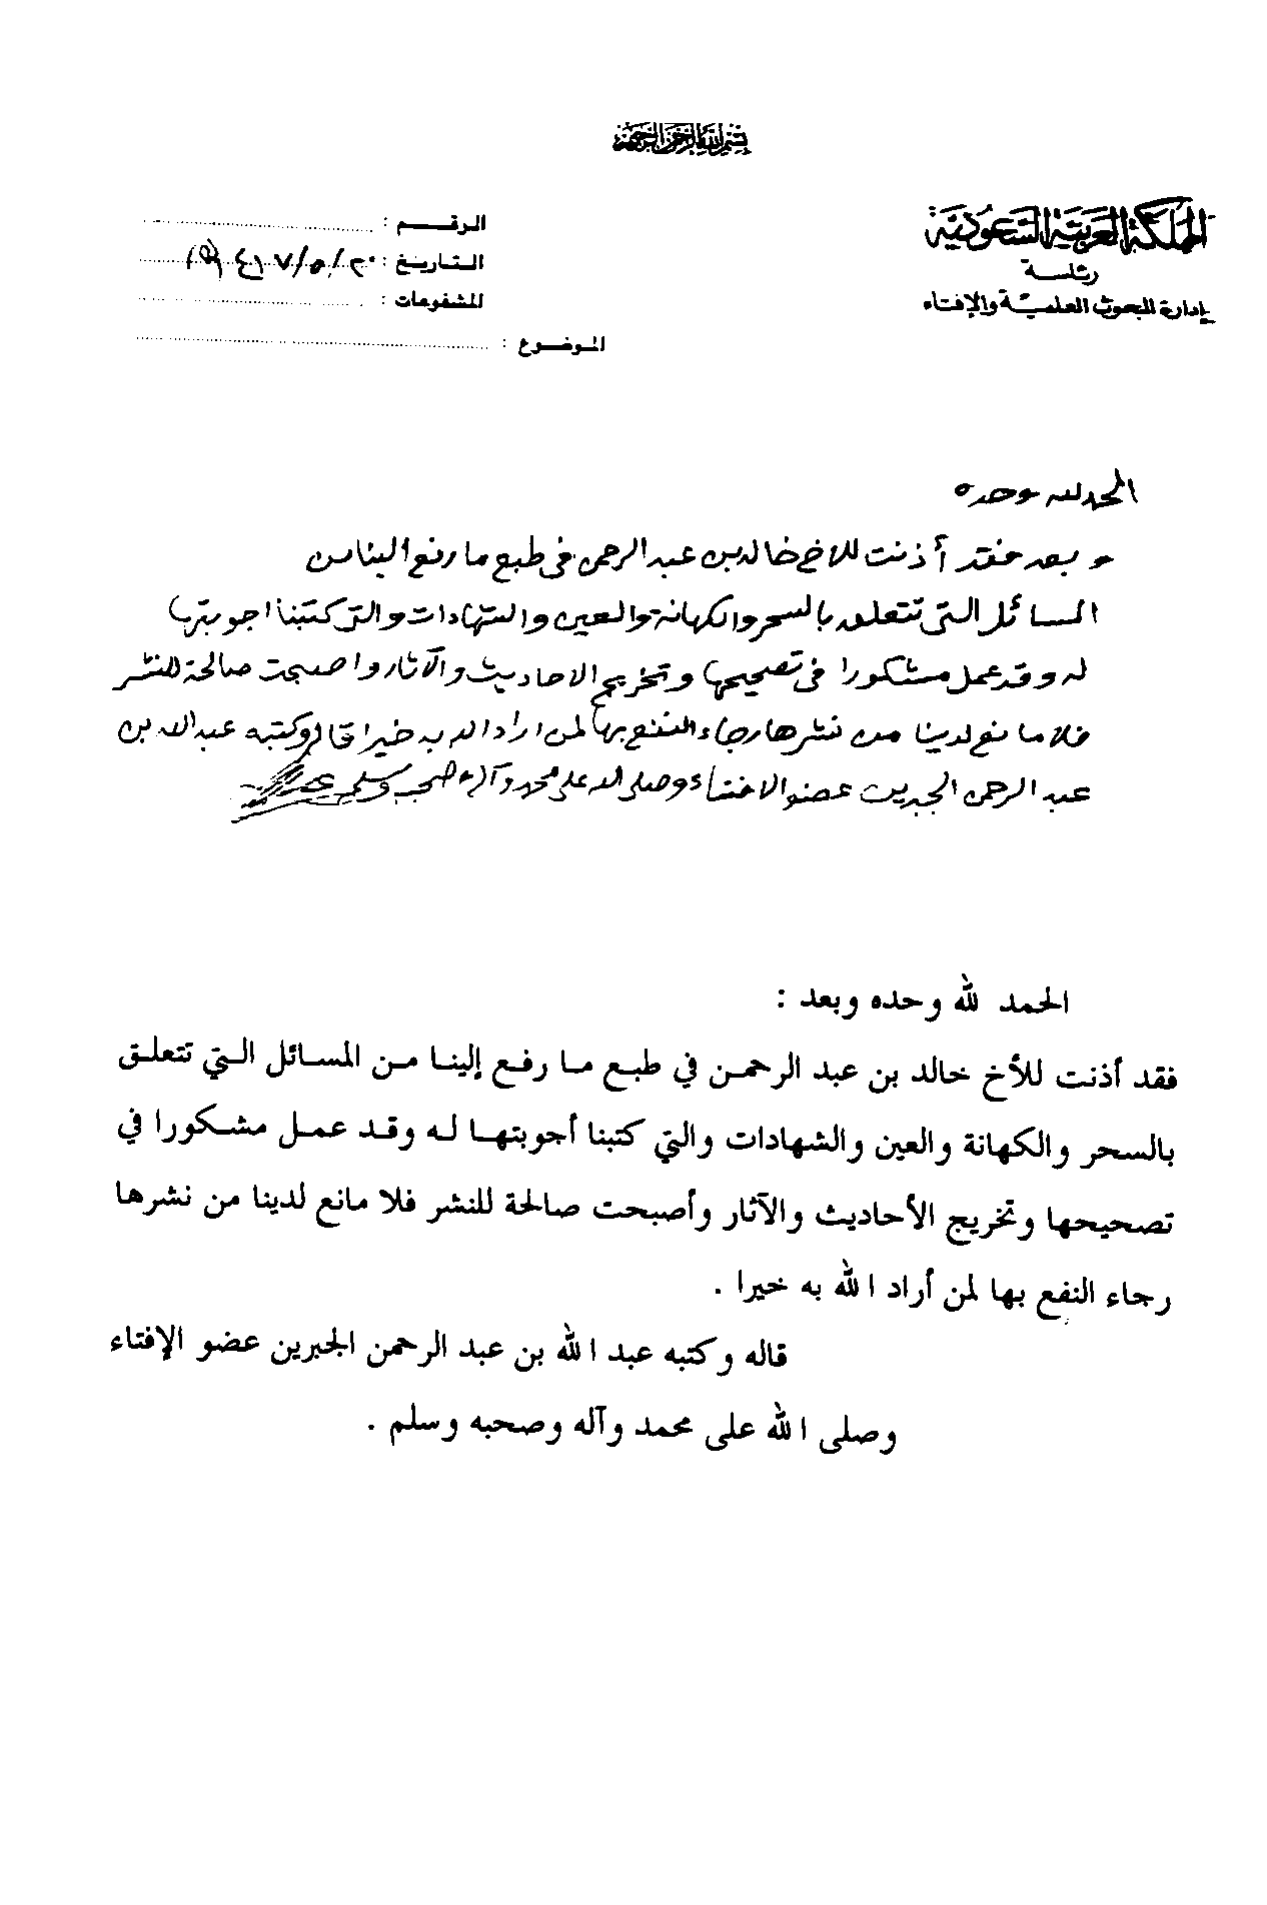 بسم الله الرحمن الرحيم
المملكة العربية السعودية
رئاسة
إدارة البحوث العلمية والإفتاء
الرقم :
التاريخ : ٢٠/٥/١٤١٧هـ
المشفوعات :
الموضوع :
الحمد لله وحده
وبعد فقد أذنت للاخ خالد بن عبد الرحمن في طبع ما رفع الينا من
المسائل التي تتعلق بالسحر والكهانة والعين والشهادات والتي كتبنا اجوبتها
له وقد عمل مشكورا في تصحيحها وتخريج الاحاديث والآثار واصبحت صالحة للنشر
فلا مانع لدينا من نشرها رجاء النفع بها لمن اراد الله به خيرا قاله وكتبه عبد الله بن
عبد الرحمن الجبرين عضو الافتاء وصلى الله على محمد وآله وصحبه وسلم
الحمد لله وحده وبعد :
فقد أذنت للأخ خالد بن عبد الرحمن في طبع ما رفع إلينا من المسائل التي تتعلق
بالسحر والكهانة والعين والشهادات والتي كتبنا أجوبتها له وقد عمل مشكورا في
تصحيحها وتخريج الأحاديث والآثار وأصبحت صالحة للنشر فلا مانع لدينا من نشرها
رجاء النفع بها لمن أراد الله به خيرا .
قاله وكتبه عبد الله بن عبد الرحمن الجبرين عضو الإفتاء
وصلى الله على محمد وآله وصحبه وسلم .